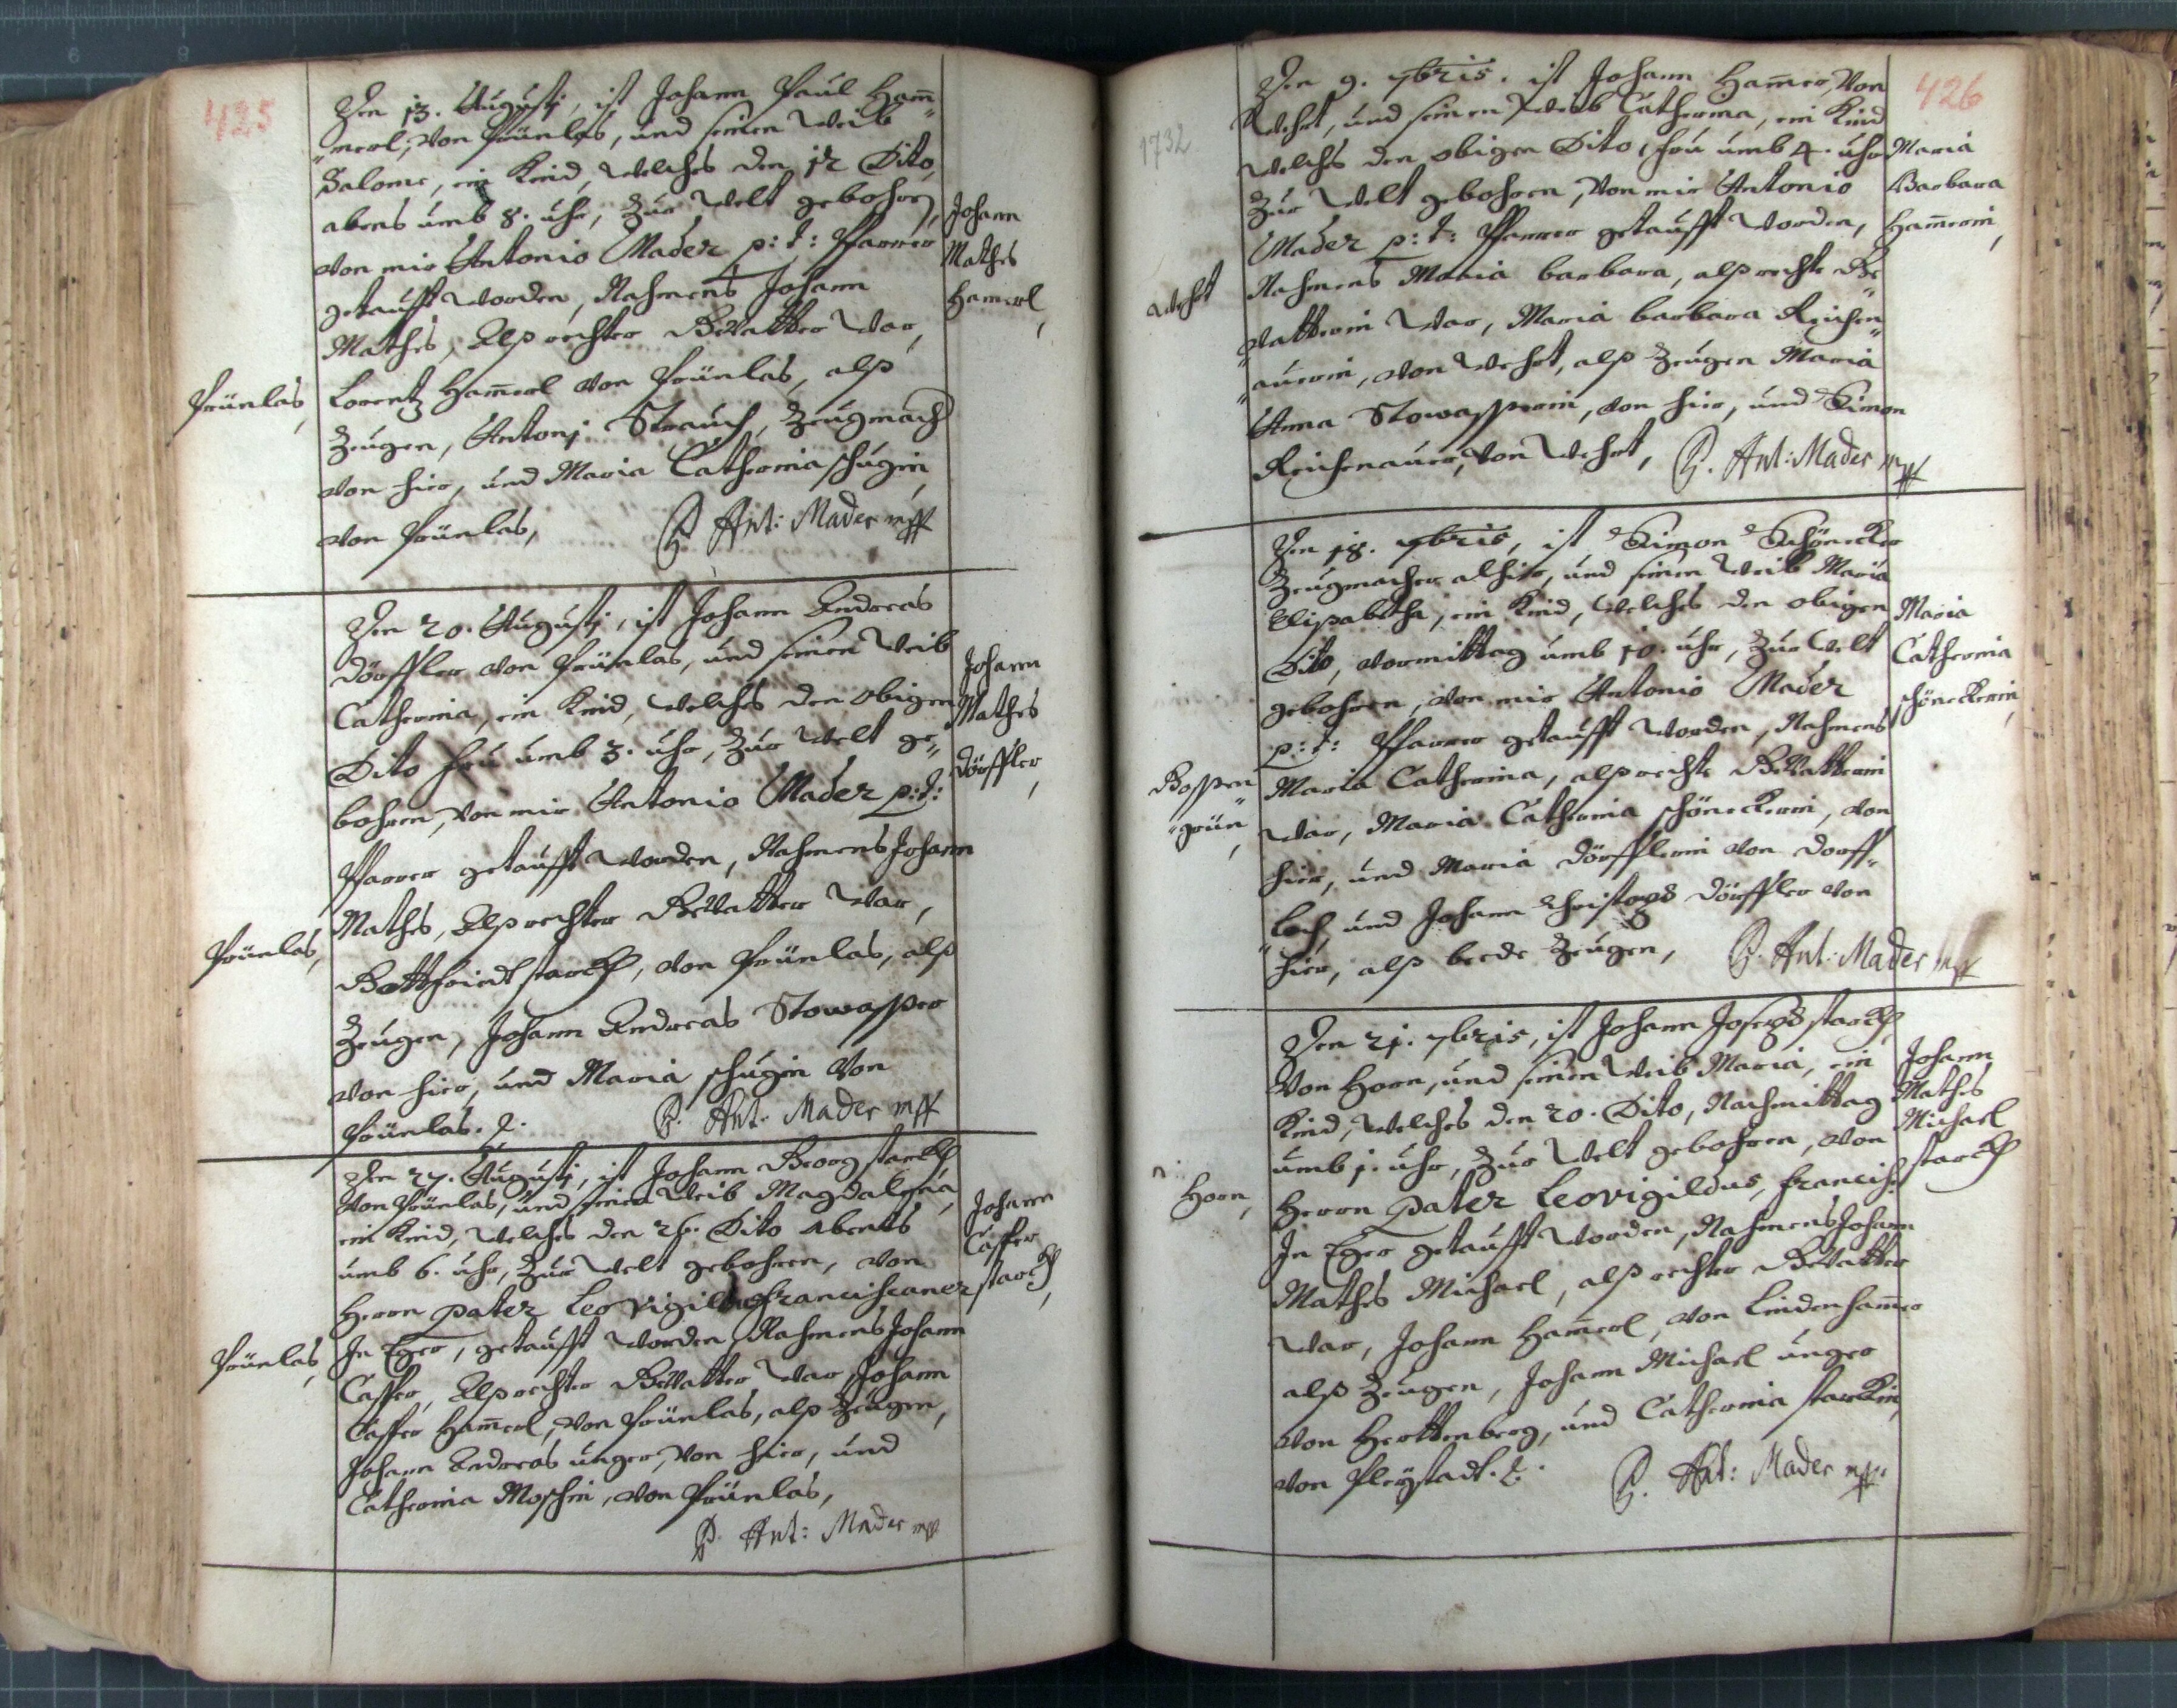 425
Den 13. Augusti, ist Johann Paul Ham̄„
„merl, von Prünlas, und seinen Weib
Salome, ein Kind, welches den 12 Dito,
abens umb 8. uhr, zur Welt gebohren,
von mir Antonio Mader p: t: Pfarrer
getaufft worden, Nahmens Johann
Mathes, Alß rechter Gevatter war,
Lorentz Ham̄erl von Prünlas, alß
Zeugen, Antonj Strauch, Zeugmach
von hier, und Maria Catherina schugin,
von Prünlas,
P. Ant: Mader mpp
Prünlas,
Johann
Mathes
Hamerl,
Den 20. Augusti, ist Johann Andreas
Dörffler von Prünlas, und seinen Weib
Catherina, ein Kind, welches den obigen
Dito fru umb 3. uhr, zur Welt ge„
bohren, von mir Antonio Mader p: t:
Pfarrer getaufft worden, Nahmens Johann
Mathes, Alß rechter Gevatter war,
Gottfriedt starck, von Prünlas, alß
Zeugen, Johann Andreas Stowasser
von hier, und Maria schugin von
Prünlas.
P. Ant. Mader mpp
Prünlas,
Johann
Mathes
Dörffler,
Den 27. Augusti, ist Johann Georg starck,
von Prünlas, und seinen Weib Magdalena,
ein Kind, welches den 26. Dito Abents
umb 6. uhr, zur Welt gebohren, von
Herrn pater Leovigild Franciscaner
In Eger, getaufft worden, Nahmens Johann
Casper, Alß rechter Gevatter war Johann
Casper Ham̄erl, von Prünlas, alß Zeugen,
Johann Andreas unger, von hier, und
Catherina Moschin, von Prünlas,
P. Ant: Mader mpp
Prünlas,
Johann
Casper
starck,
426
1732
Den 9. 7bris. ist Johann Ham̄er, von
Wehrt, und seinen Weib Catherina, ein Kind
welches den obigen Dito, fru umb 4. uhr
zur Welt gebohren, von mir Antonio
Mader p: t: Pfarrer getaufft worden,
Nahmens Maria barbara, alß rechte Ge„
„vatterin war, Maria barbara Reichen„
„auerin, von Wehrt, alß Zeugen Maria
Anna Stowasserin, von hier, und Simon
Reichenauer, von Wehrt,
P. Ant: Mader mpp
Wehrt
Maria
Barbara
Ham̄erin,
Den 18. 7bris, ist Simon Schönecker
Zeugmacher alhier, und seinen Weib Maria
Elisabetha, ein Kind, welches den obigen
Dito, vormittag umb 10. uhr, zur Welt
gebohren, von mir Antonio Mader
p: t: Pfarrer getaufft worden, Nahmens
Maria Catherina, alß rechte Gevatterin
war, Maria Catherina schöneckerin, von
hier, und Maria Dörfflerin von Dorff„
„lach, und Johann Christoph Dörffler von
hier, alß beede Zeugen,
P. Ant: Mader mpp
Gossen„
„grün,
Maria
Catherina
schöneckerin,
Den 21. 7bris, ist Johann Joseph starck,
von Horn, und seinen Weib Maria, ein
Kind, welches den 20. Dito, Nachmittag
umb 1. uhr, zur Welt gebohren, von
Herrn pater Leovigildus, Francisc:
In Eger getaufft worden, Nahmens Johann
Mathes Michael, alß rechter Gevatter
war, Johann Ham̄erl, von Lindenham̄er
alß Zeugen, Johann Michael unger
von Herttenberg, und Catherina starckin,
von Pleystadt.
P. Ant: Mader mpp.
Horn,
Johann
Mathes
Michael
starck